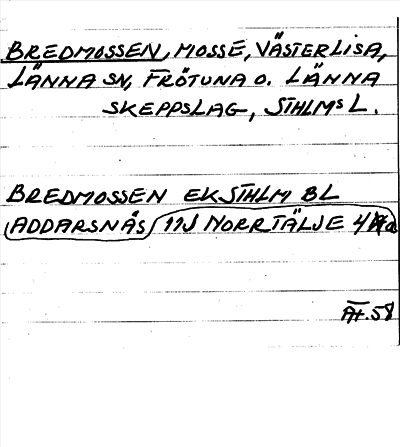 BREDMOSSEN, MOSSE, VÄSTERLISA,
LÄNNA SN, FRÖTUNA O. LÄNNA
SKEPPSLAG, STHLMS L.
BREDMOSSEN EKSTHLM BL
ADDARSNÄS 11J NORRTÄLJE 4
ÄT.58